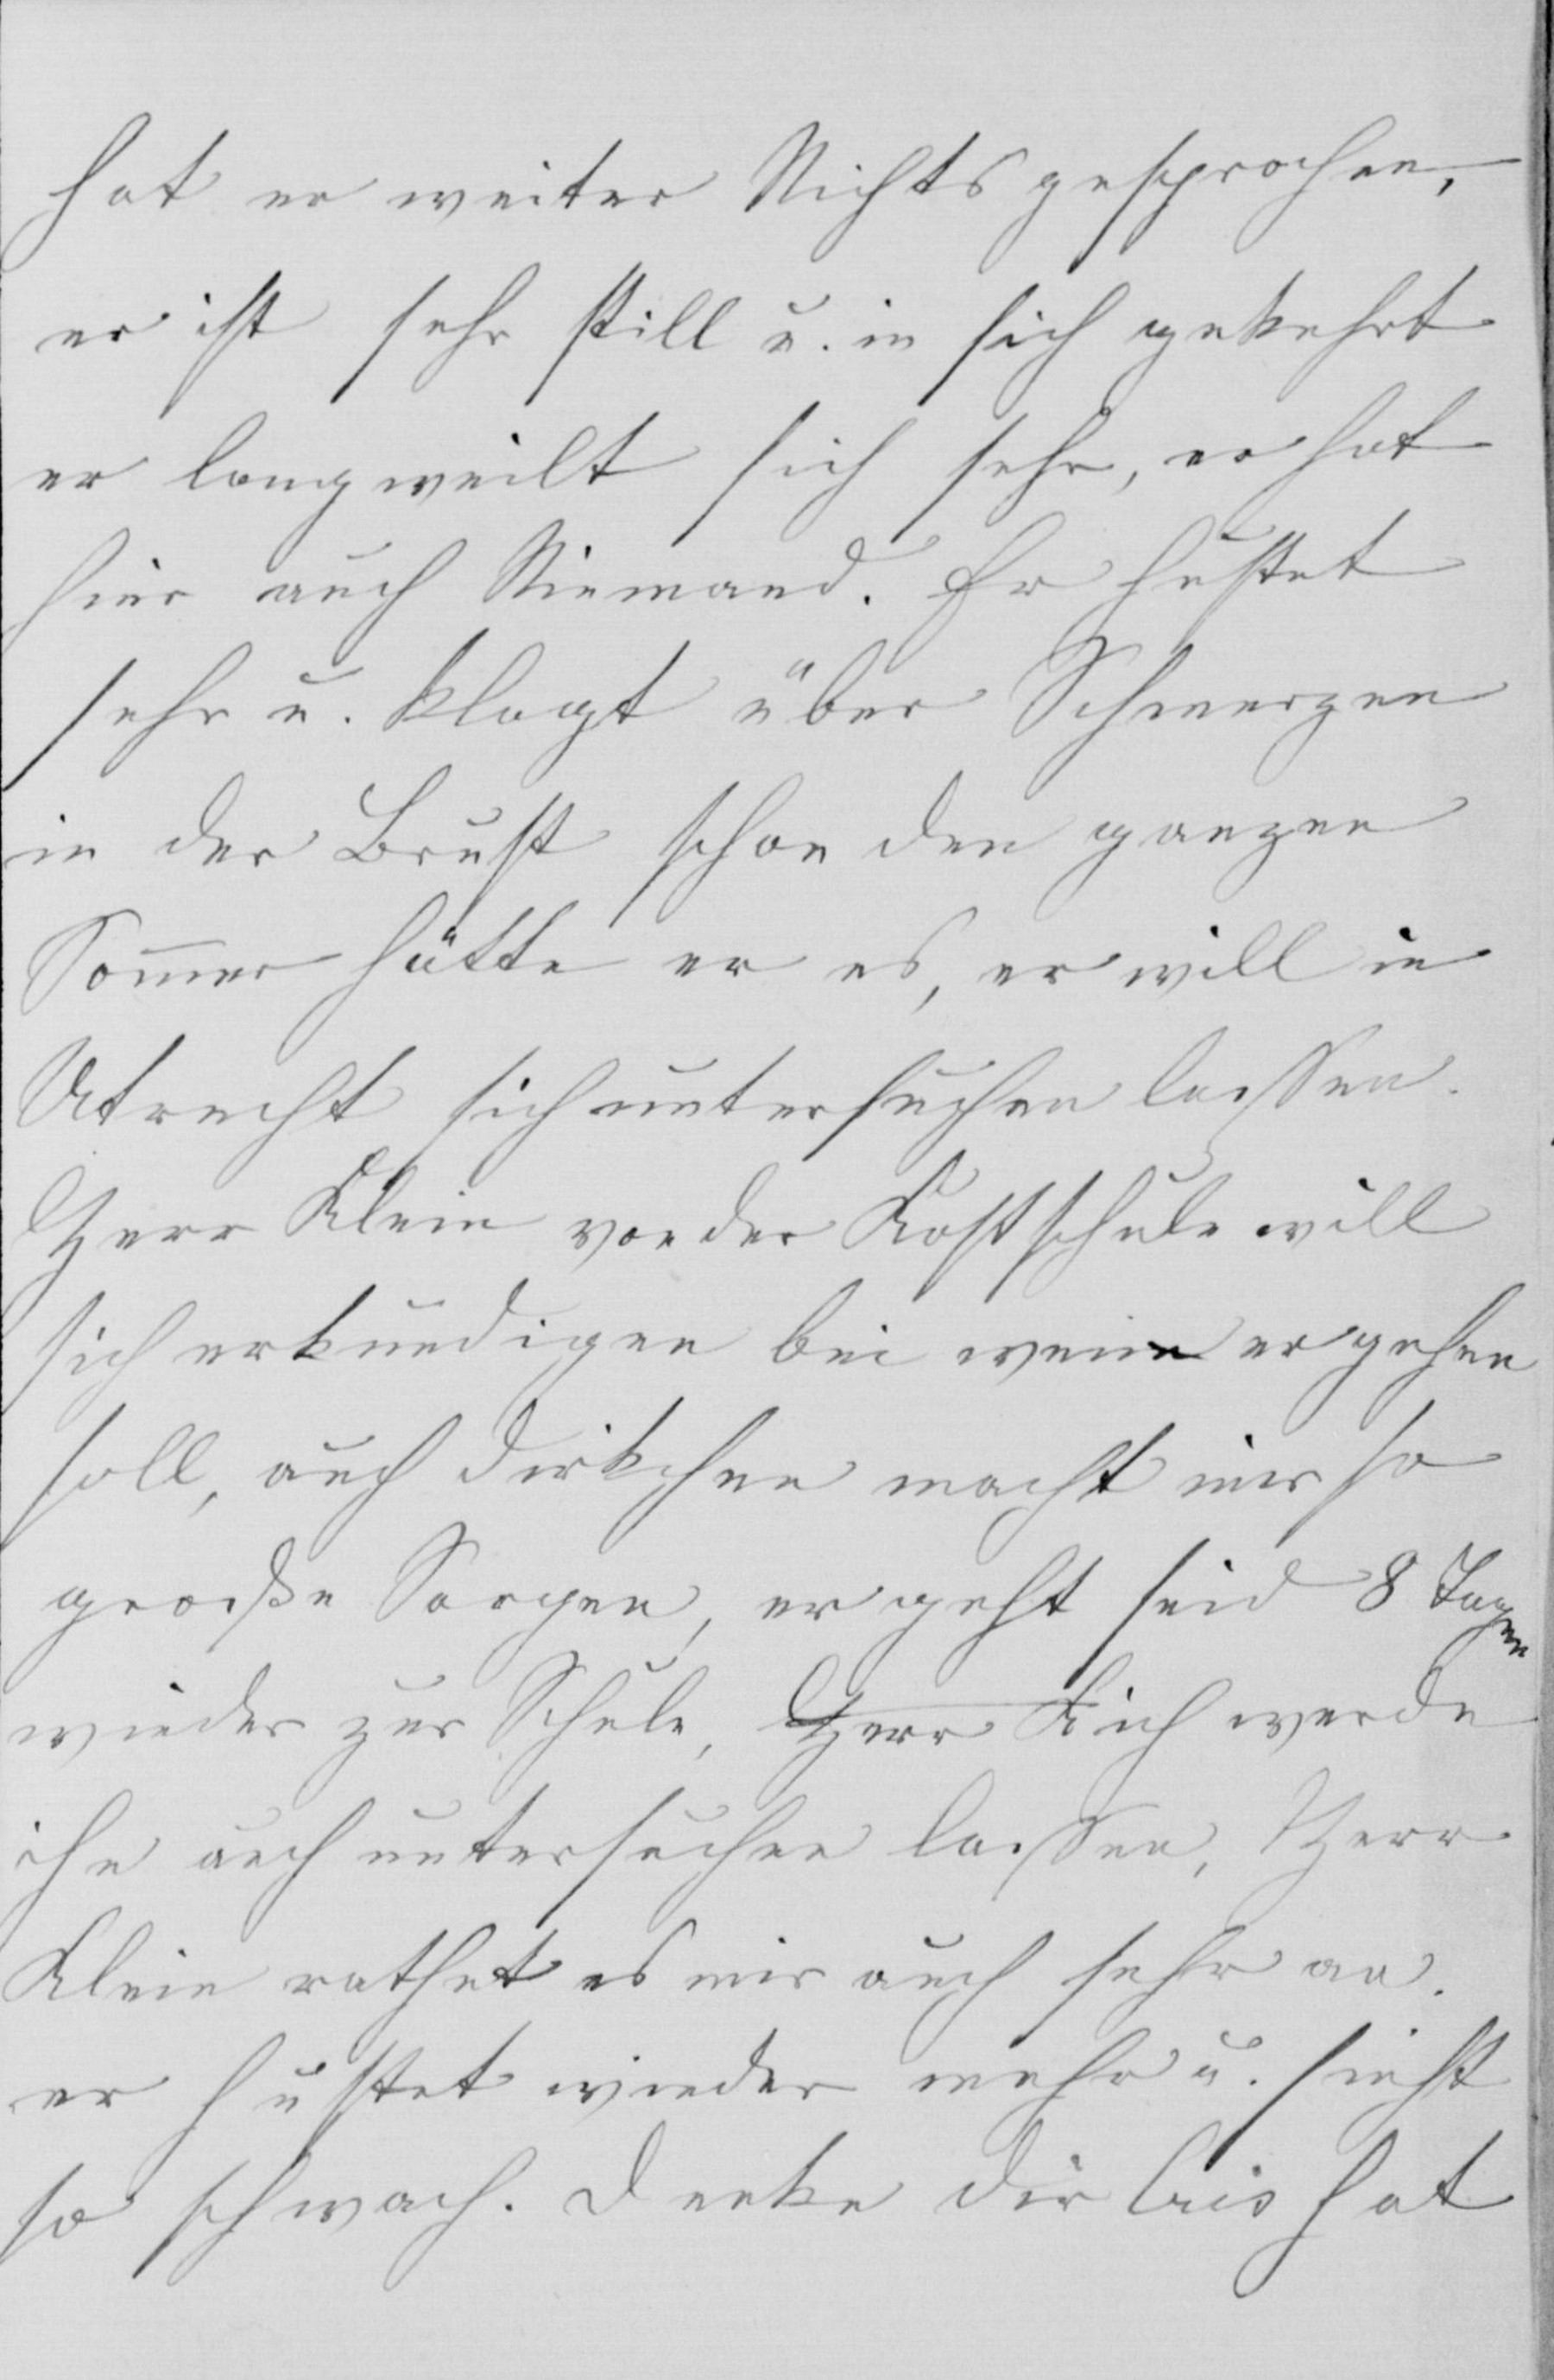 hat er weiter Nichts gesprochen,
er ist sehr still u. in sich gekehrt
er langweilt sich sehr, er hat
hier auch Niemand. Er hustet
sehr u. klagt über Schmerzen
in der Brust schon den ganzen
Som̄er hätte er es, er will in
Utrecht sich untersuchen lassen.
Herr Klein von der Kostschule will
sich erkundigen bei wem er gehen
soll, auch Dirkchen macht mir so
große Sorgen, er geht seid 8 Tagen
wieder zur Schule, Herr ich werde
ihn auch untersuchen lassen, Herr
Klein rathet es mir auch sehr an.
er hustet wieder mehr u. sieht
so schwach. Denke dir Cris hat